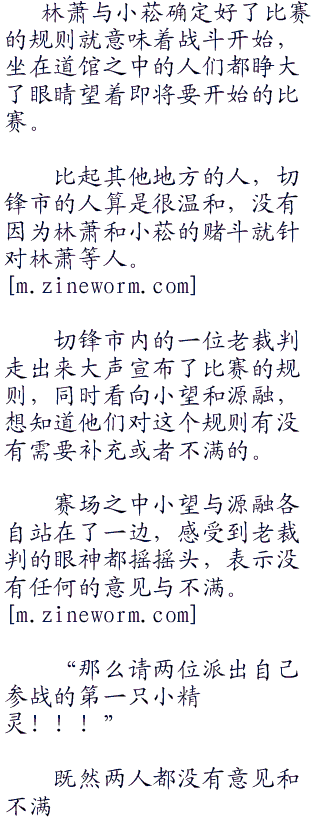 林萧与小菘确定好了比赛
的规则就意味着战斗开始，
坐在道馆之中的人们都睁大
了眼睛望着即将要开始的比
赛。
比起其他地方的人，切
锋市的人算是很温和，没有
因为林萧和小菘的赌斗就针
对林萧等人。
[m.zineworm.com]
切锋市内的一位老裁判
走出来大声宣布了比赛的规
则，同时看向小望和源融，
想知道他们对这个规则有没
有需要补充或者不满的。
赛场之中小望与源融各
自站在了一边，感受到老裁
判的眼神都摇摇头，表示没
有任何的意见与不满。
[m.zineworm.com]
“那么请两位派出自己
参战的第一只小精
灵！！！”
既然两人都没有意见和
不满